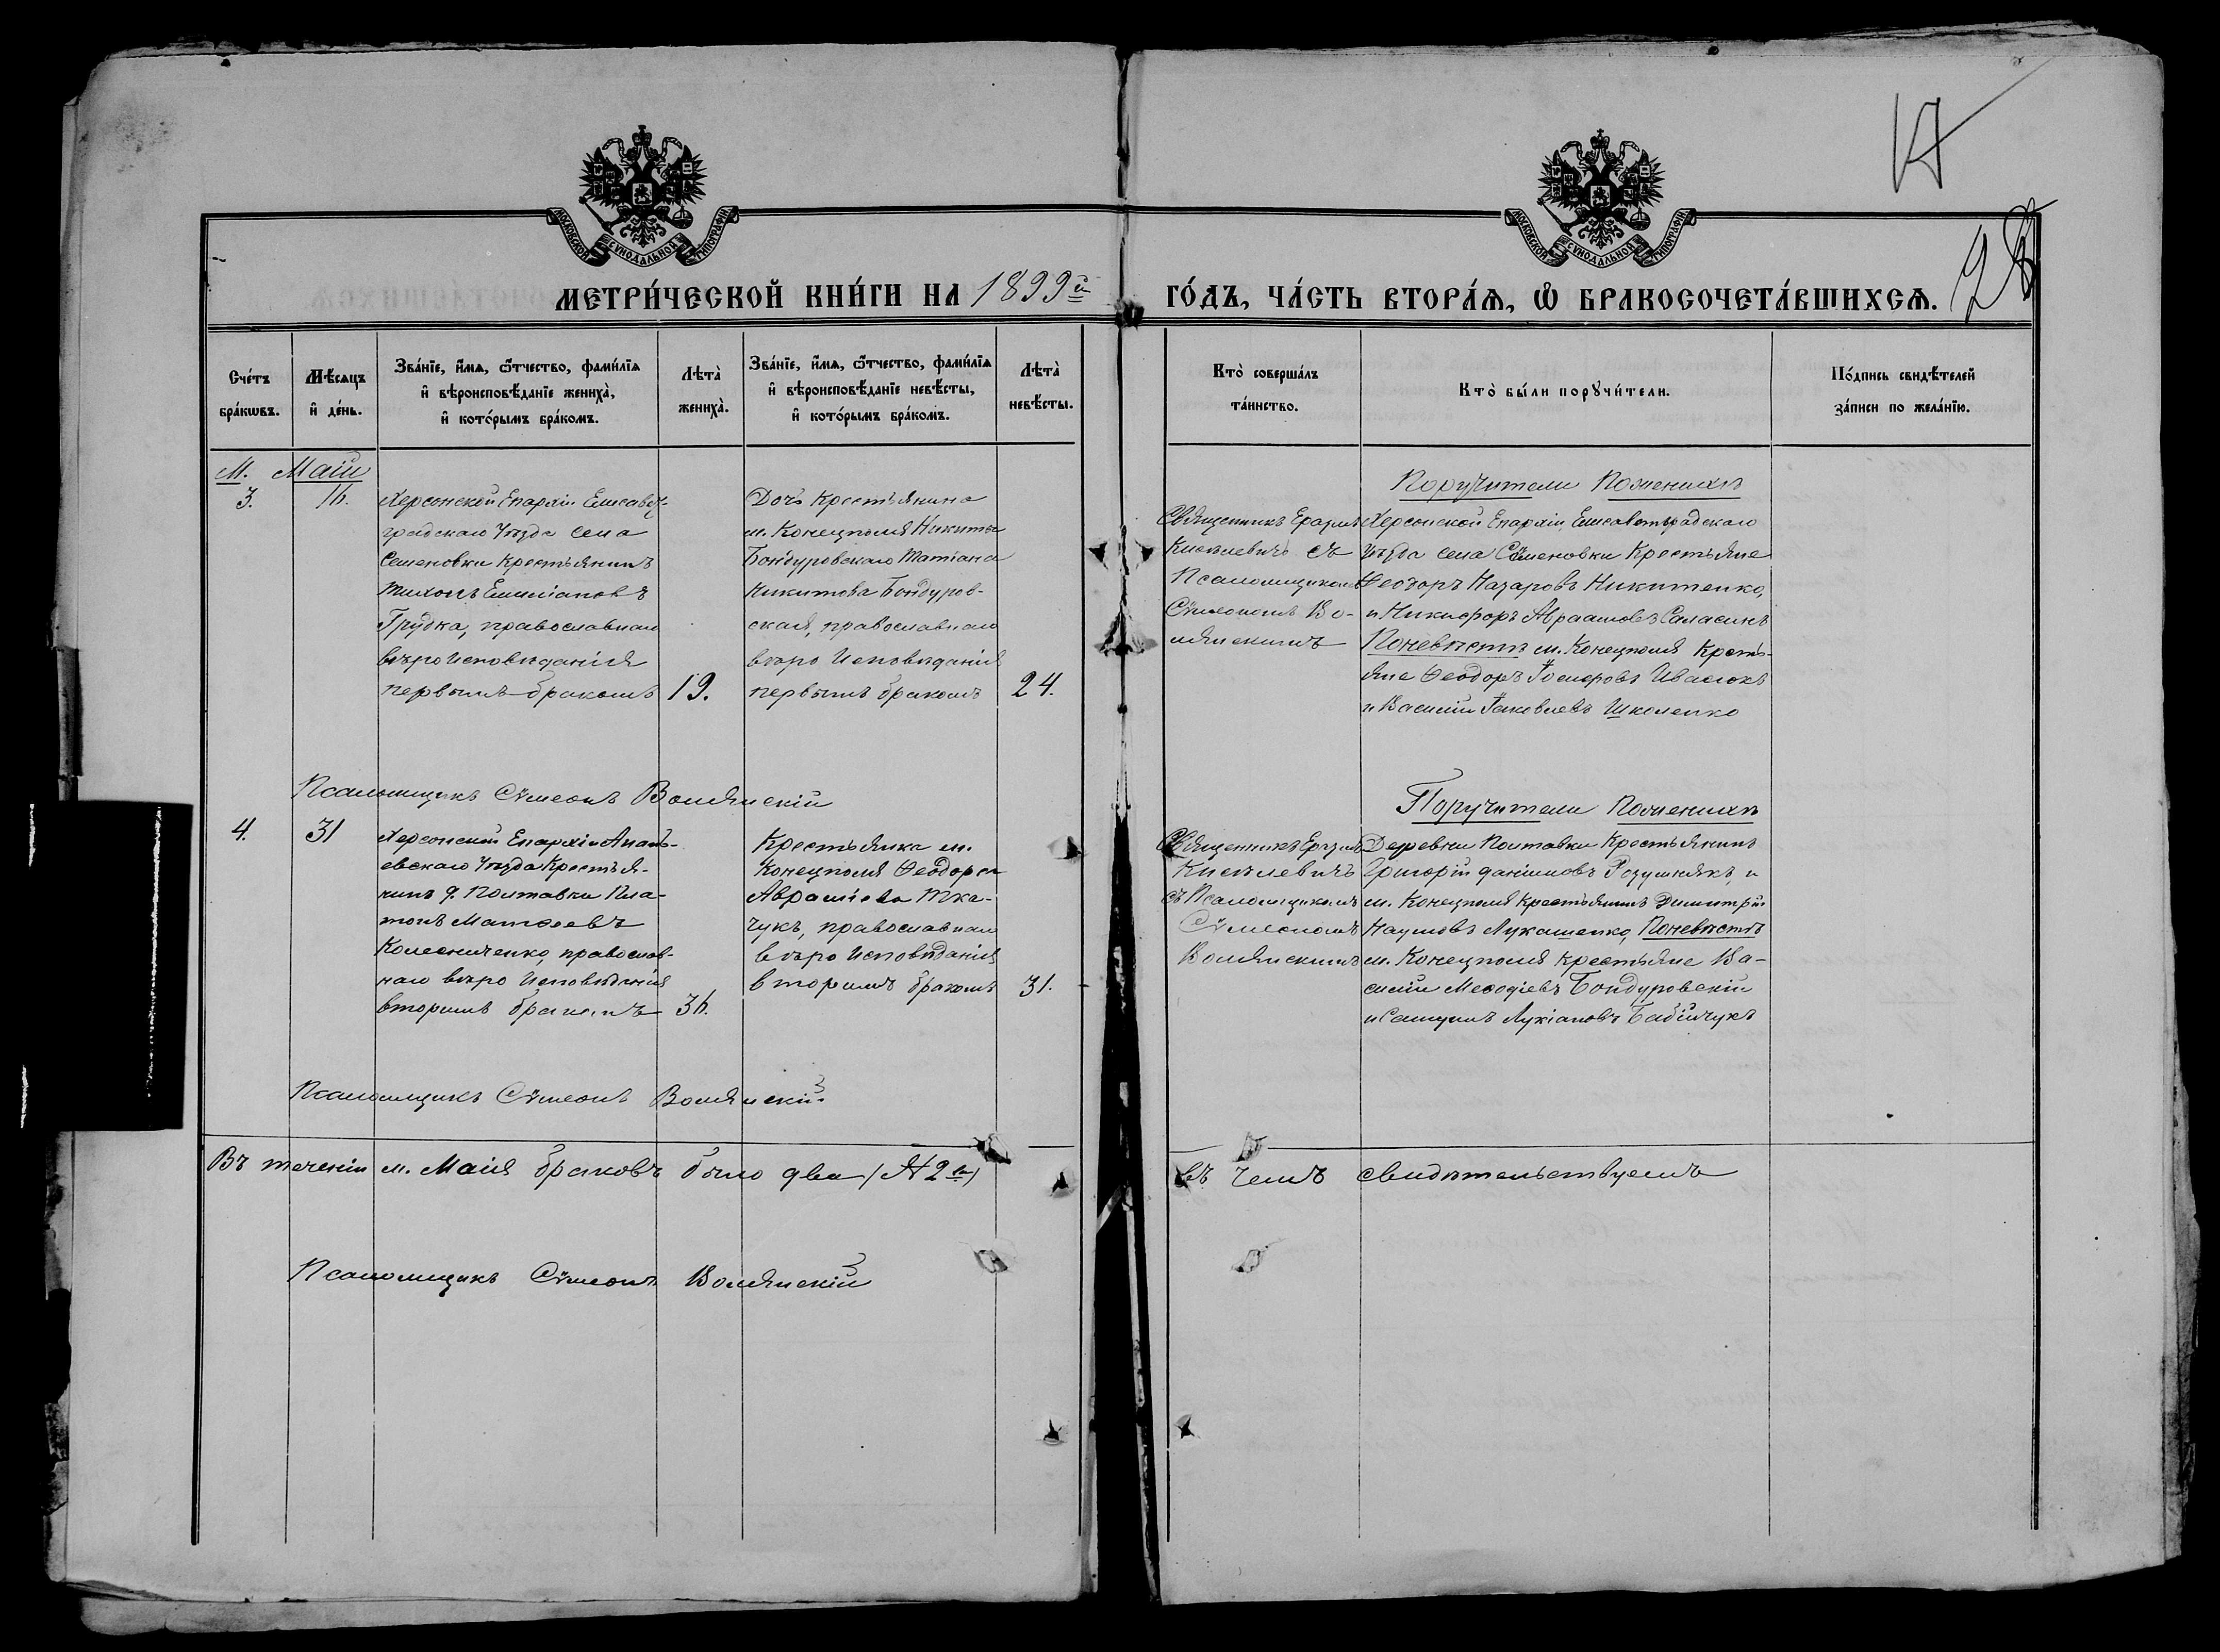 17
28
МОСКОВСКОЙ СѴНОДАЛЬНОЙ ТИПОГРАФІИ
МОСКОВСКОЙ СѴНОДАЛЬНОЙ ТИПОГРАФІИ
МЕТРИ́ЧЕСКОЙ КНИ́ГИ НА 1899й
ГО́ДЪ, ЧА́СТЬ ВТОРА́Ѧ, Ѡ҆ БРАКОСОЧЕТА́ВШИХСѦ.
Сче́тъ бра́кѡвъ.
Мѣ́сѧцъ и҆ де́нь.
Зва́нїе, и҆́мѧ, ѻ҆́тчество, фамѝлїѧ
и҆ вѣроисповѣ́данїе жениха̀,
и҆ кото́рымъ бра́комъ.
Лѣта̀ жениха̀.
Зва́нїе, и҆́мѧ, ѻ҆́тчество, фамѝлїѧ
и҆ вѣроисповѣ́данїе невѣ́сты,
и҆ кото́рымъ бра́комъ.
Лѣта̀ невѣ́сты.
Кто̀ соверша́лъ та́инство.
Кто̀ бы́ли порꙋчи́тели.
По́дпись свидѣ́телей
за́писи по жела́нїю.
М. Маій
3.
16.
Херсонской Епархіи Елисавет-
градскаго Уѣзда села
Семеновки Крестьянинъ
Тихонъ Емиліановъ
Грудка, православнаго
вѣроисповѣданія
первымъ бракомъ
19.
Дочь Крестьянина
м. Конецполя Никиты
Бондуровскаго Татіана
Никитова Бондуров-
ская, православнаго
вѣроисповѣданія
первымъ бракомъ
24.
Священникъ Еразмъ
Киселевичъ съ
Псаломщикомъ
Сѵмеономъ Во-
лянскимъ
Поручители По женихѣ
Херсонской Епархіи, Елисаветградскаго
Уѣзда села Семеновки Крестьяне
Ѳеодоръ Назаровъ Никитенко,
и Никифоръ Авраамовъ Саласинъ
По невѣстѣ м. Конецполя Кресть-
яне Ѳеодоръ Іосифовъ Ивасюкъ
и Василій Іаковлевъ Школенко
Псаломщикъ Сѵмеонъ Волянскій
4.
31
Херсонской Епархіи Анань-
евскаго Уѣзда Крестья-
нинъ д. Полтавки Пла-
тонъ Матѳеевъ
Колесниченко, православ-
наго вѣроисповѣданія
вторымъ бракомъ
36.
Крестьянка м.
Конецполя Ѳеодора
Авраміева Тка-
чукъ, православнаго
вѣроисповѣданія
вторымъ бракомъ
31.
Священникъ Еразмъ
Киселевичъ
съ Псаломщикомъ
Сѵмеономъ
Волянскимъ
Поручители По женихѣ
Деревни Полтавки Крестьянинъ
Григорій Даніиловъ Розумнякъ, и
м. Конецполя Крестьянинъ Димитрій
Наумовъ Лукашенко, По невѣстѣ
м. Конецполя крестьяне Ва-
силій Меѳодіевъ Бондуровскій
и Самуилъ Лукіановъ Бабійчукъ
Псаломщикъ Сѵмеонъ Волянскій
Въ теченіи м. Маія браковъ было два (№ 2й)
въ чемъ свидѣтельствуемъ
Псаломщикъ Сѵмеонъ Волянскій